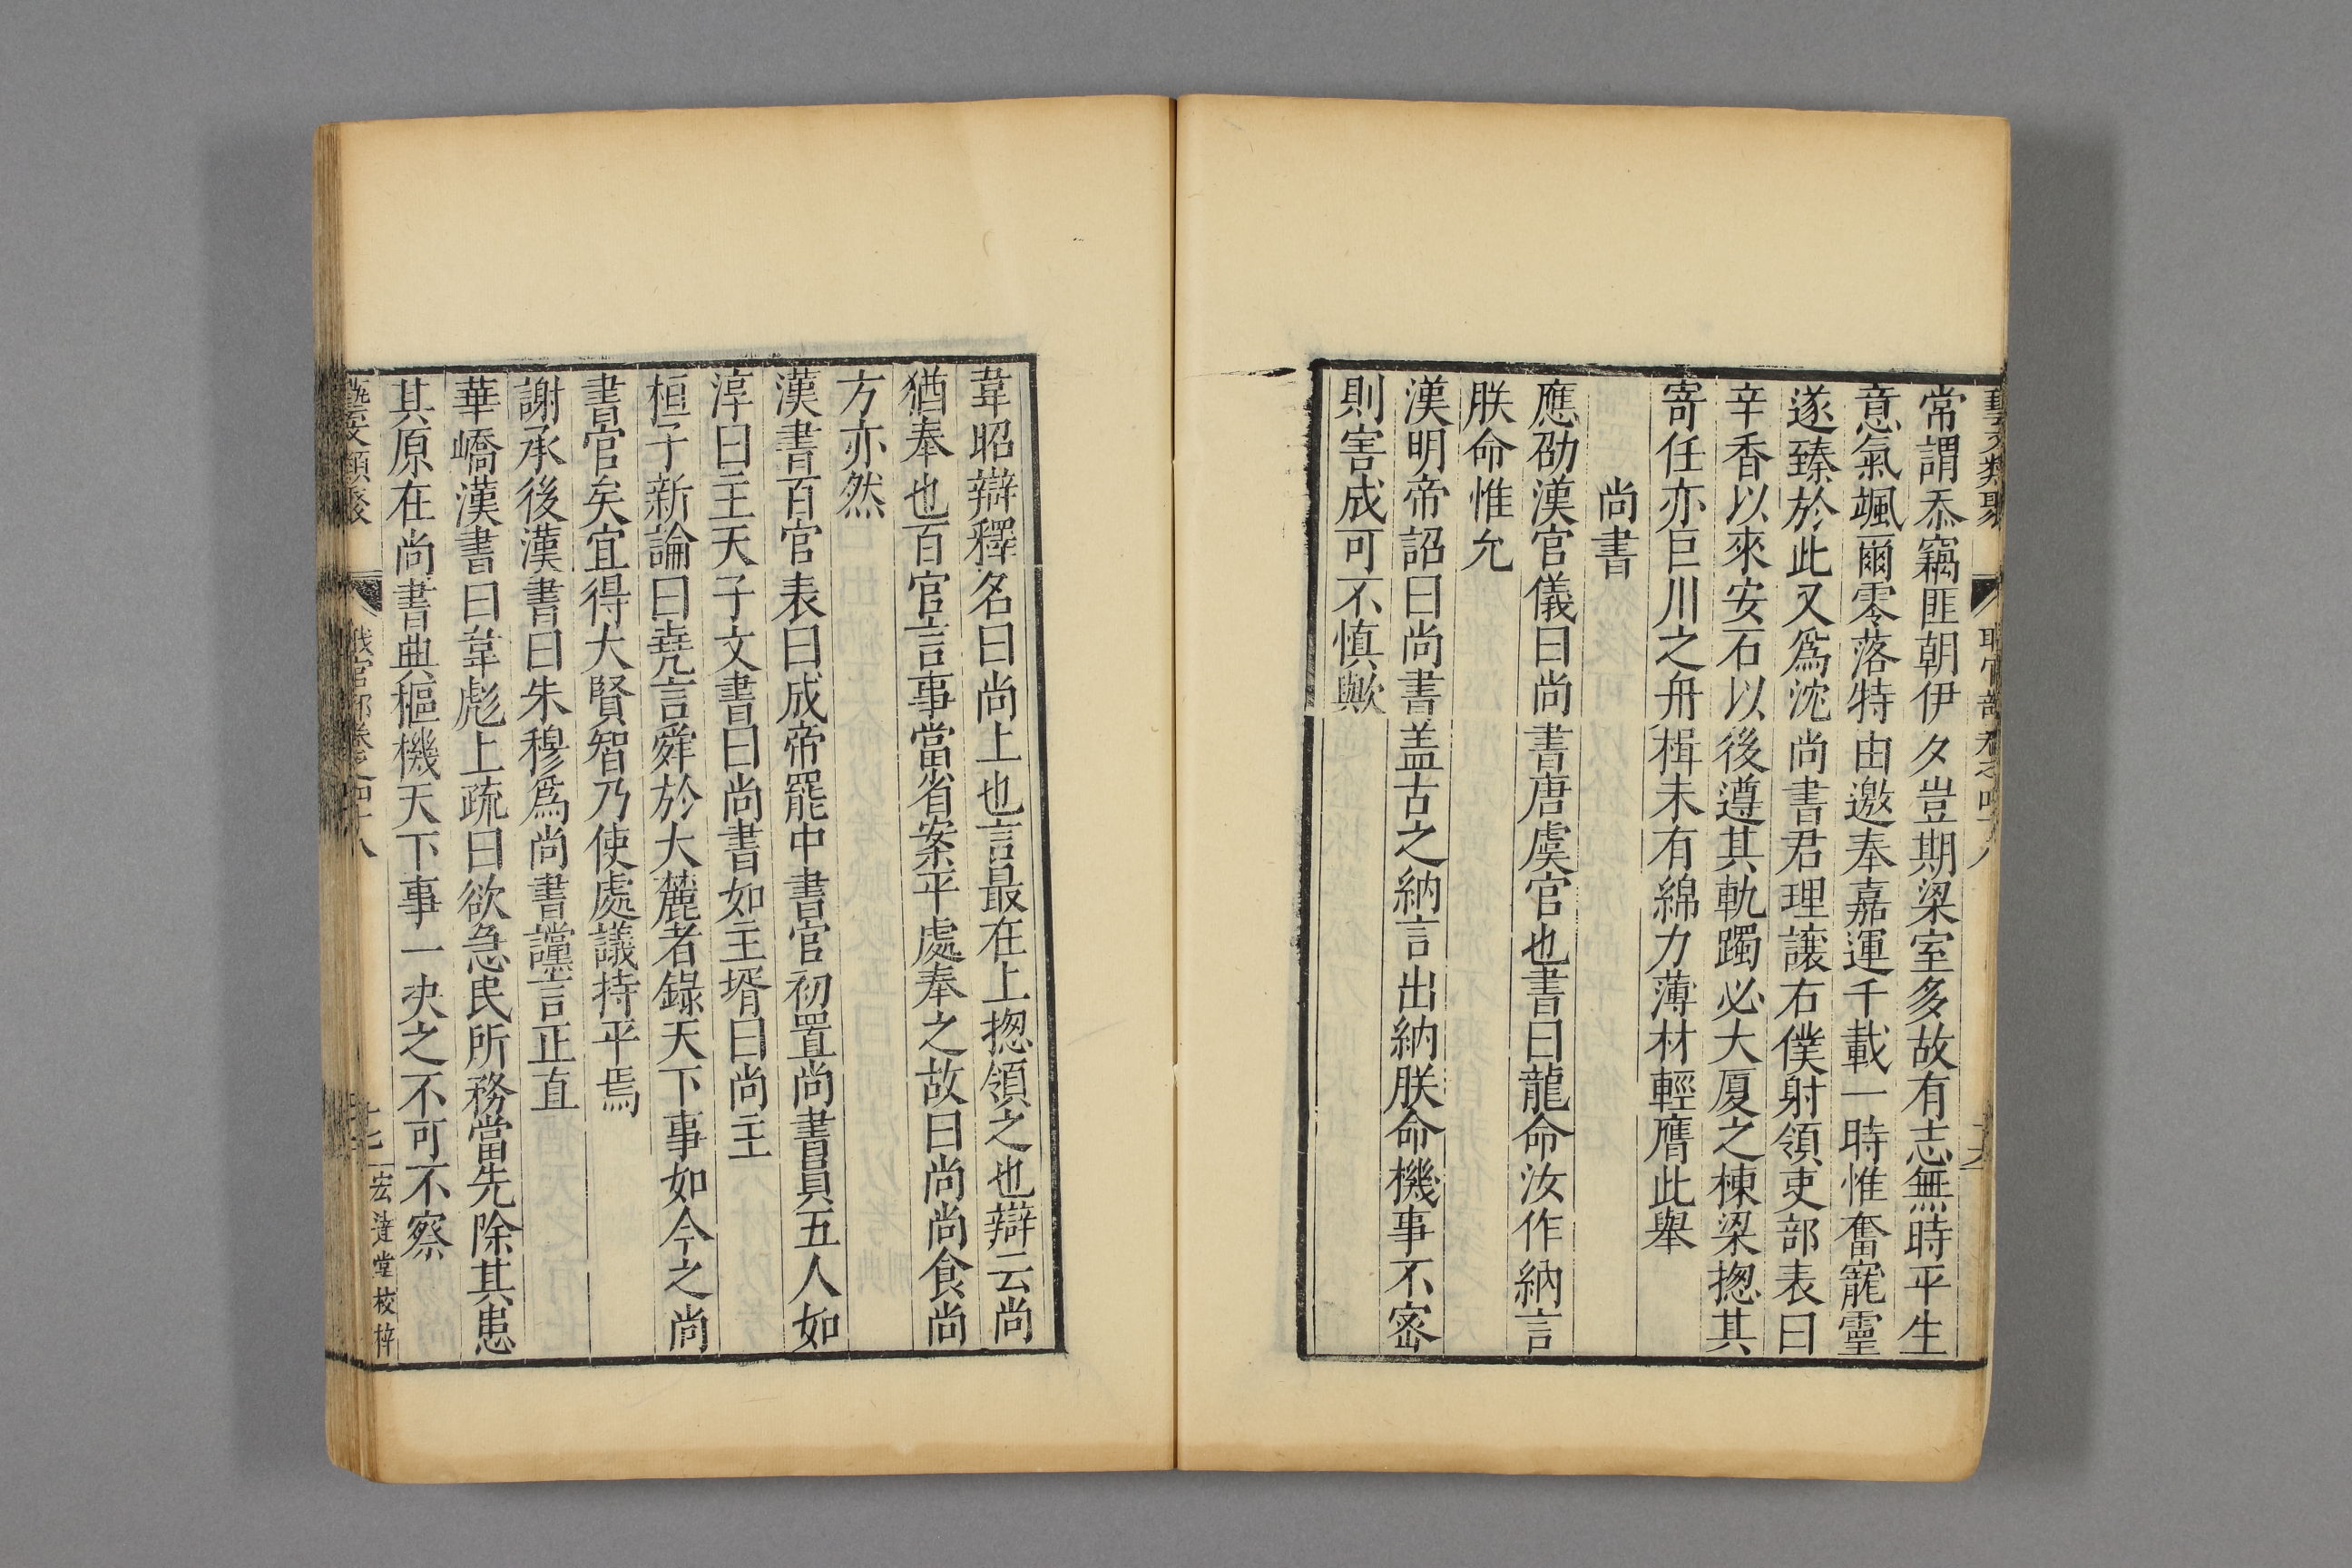 藝文類聚 職官部卷之四十八
常謂忝竊匪朝伊夕豈期梁室多故有志無時平生
意氣颯爾零落特由邀奉嘉運千載一時惟奮寵靈
遂臻於此又爲沈尚書君理讓右僕射領吏部表曰
辛香以來安石以後遵其軌躅必大厦之棟梁揔其
寄任亦巨川之舟楫未有綿力薄材輕膺此舉
尚書
應劭漢官儀曰尚書唐虞官也書曰龍命汝作納言
朕命惟允
漢明帝詔曰尚書盖古之納言出納朕命機事不密
則害成可不慎歟
韋昭辯釋名曰尚上也言最在上揔領之也辯云尚
猶奉也百官言事當省案平處奉之故曰尚尚食尚
方亦然
漢書百官表曰成帝罷中書官初置尚書員五人如
淳曰主天子文書曰尚書如主壻曰尚主
桓子新論曰堯言舜於大麓者錄天下事如今之尚
書官矣宜得大賢智乃使處議持平焉
謝承後漢書曰朱穆爲尚書讜言正直
華嶠漢書曰韋彪上疏曰欲急民所務當先除其患
其原在尚書典樞機天下事一决之不可不察
藝文類聚 職官部卷之四十八 十七 宏達堂校梓